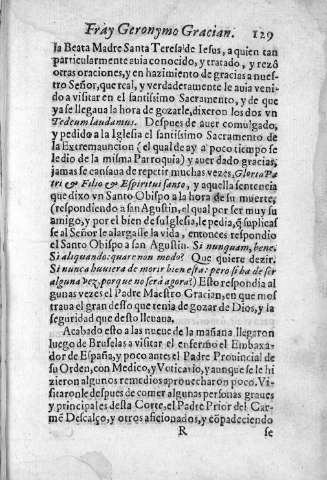 Fray Geronymo Gracian. 129
la Beata Madre Santa Teresa de Iesus, a quien tan
particularmente auia conocido, y tratado, y rezô
otras oraciones, y en hazimiento de gracias a nues-
tro Señor, que real, y verdaderamente le auia veni-
do a visitar en el santissimo Sacramento, y de que
ya se llegaua la hora de gozarle, dixeron los dos vn
Tedeum laudamus. Despues de auer comulgado,
y pedido a la Iglesia el santissimo Sacramento de
la Extremauncion (el qual de ay a poco tiempo se
le dio de la misma Parroquia) y auer dado gracias,
jamas se cansaua de repetir muchas vezes, Gloria Pa-
tri & Filio & Espiritui santo, y aquella sentencia
que dixo vn Santo Obispo a la hora de su muerte,
(respondiendo a san Agustin, el qual por ser muy su
amigo, y por el bien de su Iglesia, le pedia, q̃ suplicas
se al Señor le alargasse la vida, entonces respondio
el Santo Obispo a san Agustin. Si nunquam, bene.
Si aliquando: quare non modo? Que quiere dezir.
Si nunca huuiera de morir bien esta: pero si ha de ser
alguna vez, porque no serà agora?) Esto respondia al
gunas vezes el Padre Maestro Gracian, en que mos
traua el gran desseo que tenia de gozar de Dios, y la
seguridad que desto lleuaua.
Acabado esto a las nueue de la mañana llegaron
luego de Bruselas a visitar el enfermo el Embaxa-
dor de España, y poco antes el Padre Prouincial de
su Orden, con Medico, y Voticario, y aunque se le hi
zieron algunos remedios aprouecharon poco. Vi-
sitaronle despues de comer algunas personas graues
y principales desta Corte, el Padre Prior del Car-
mẽ Descalço, y otros aficionados, y cõpadeciendo
R se